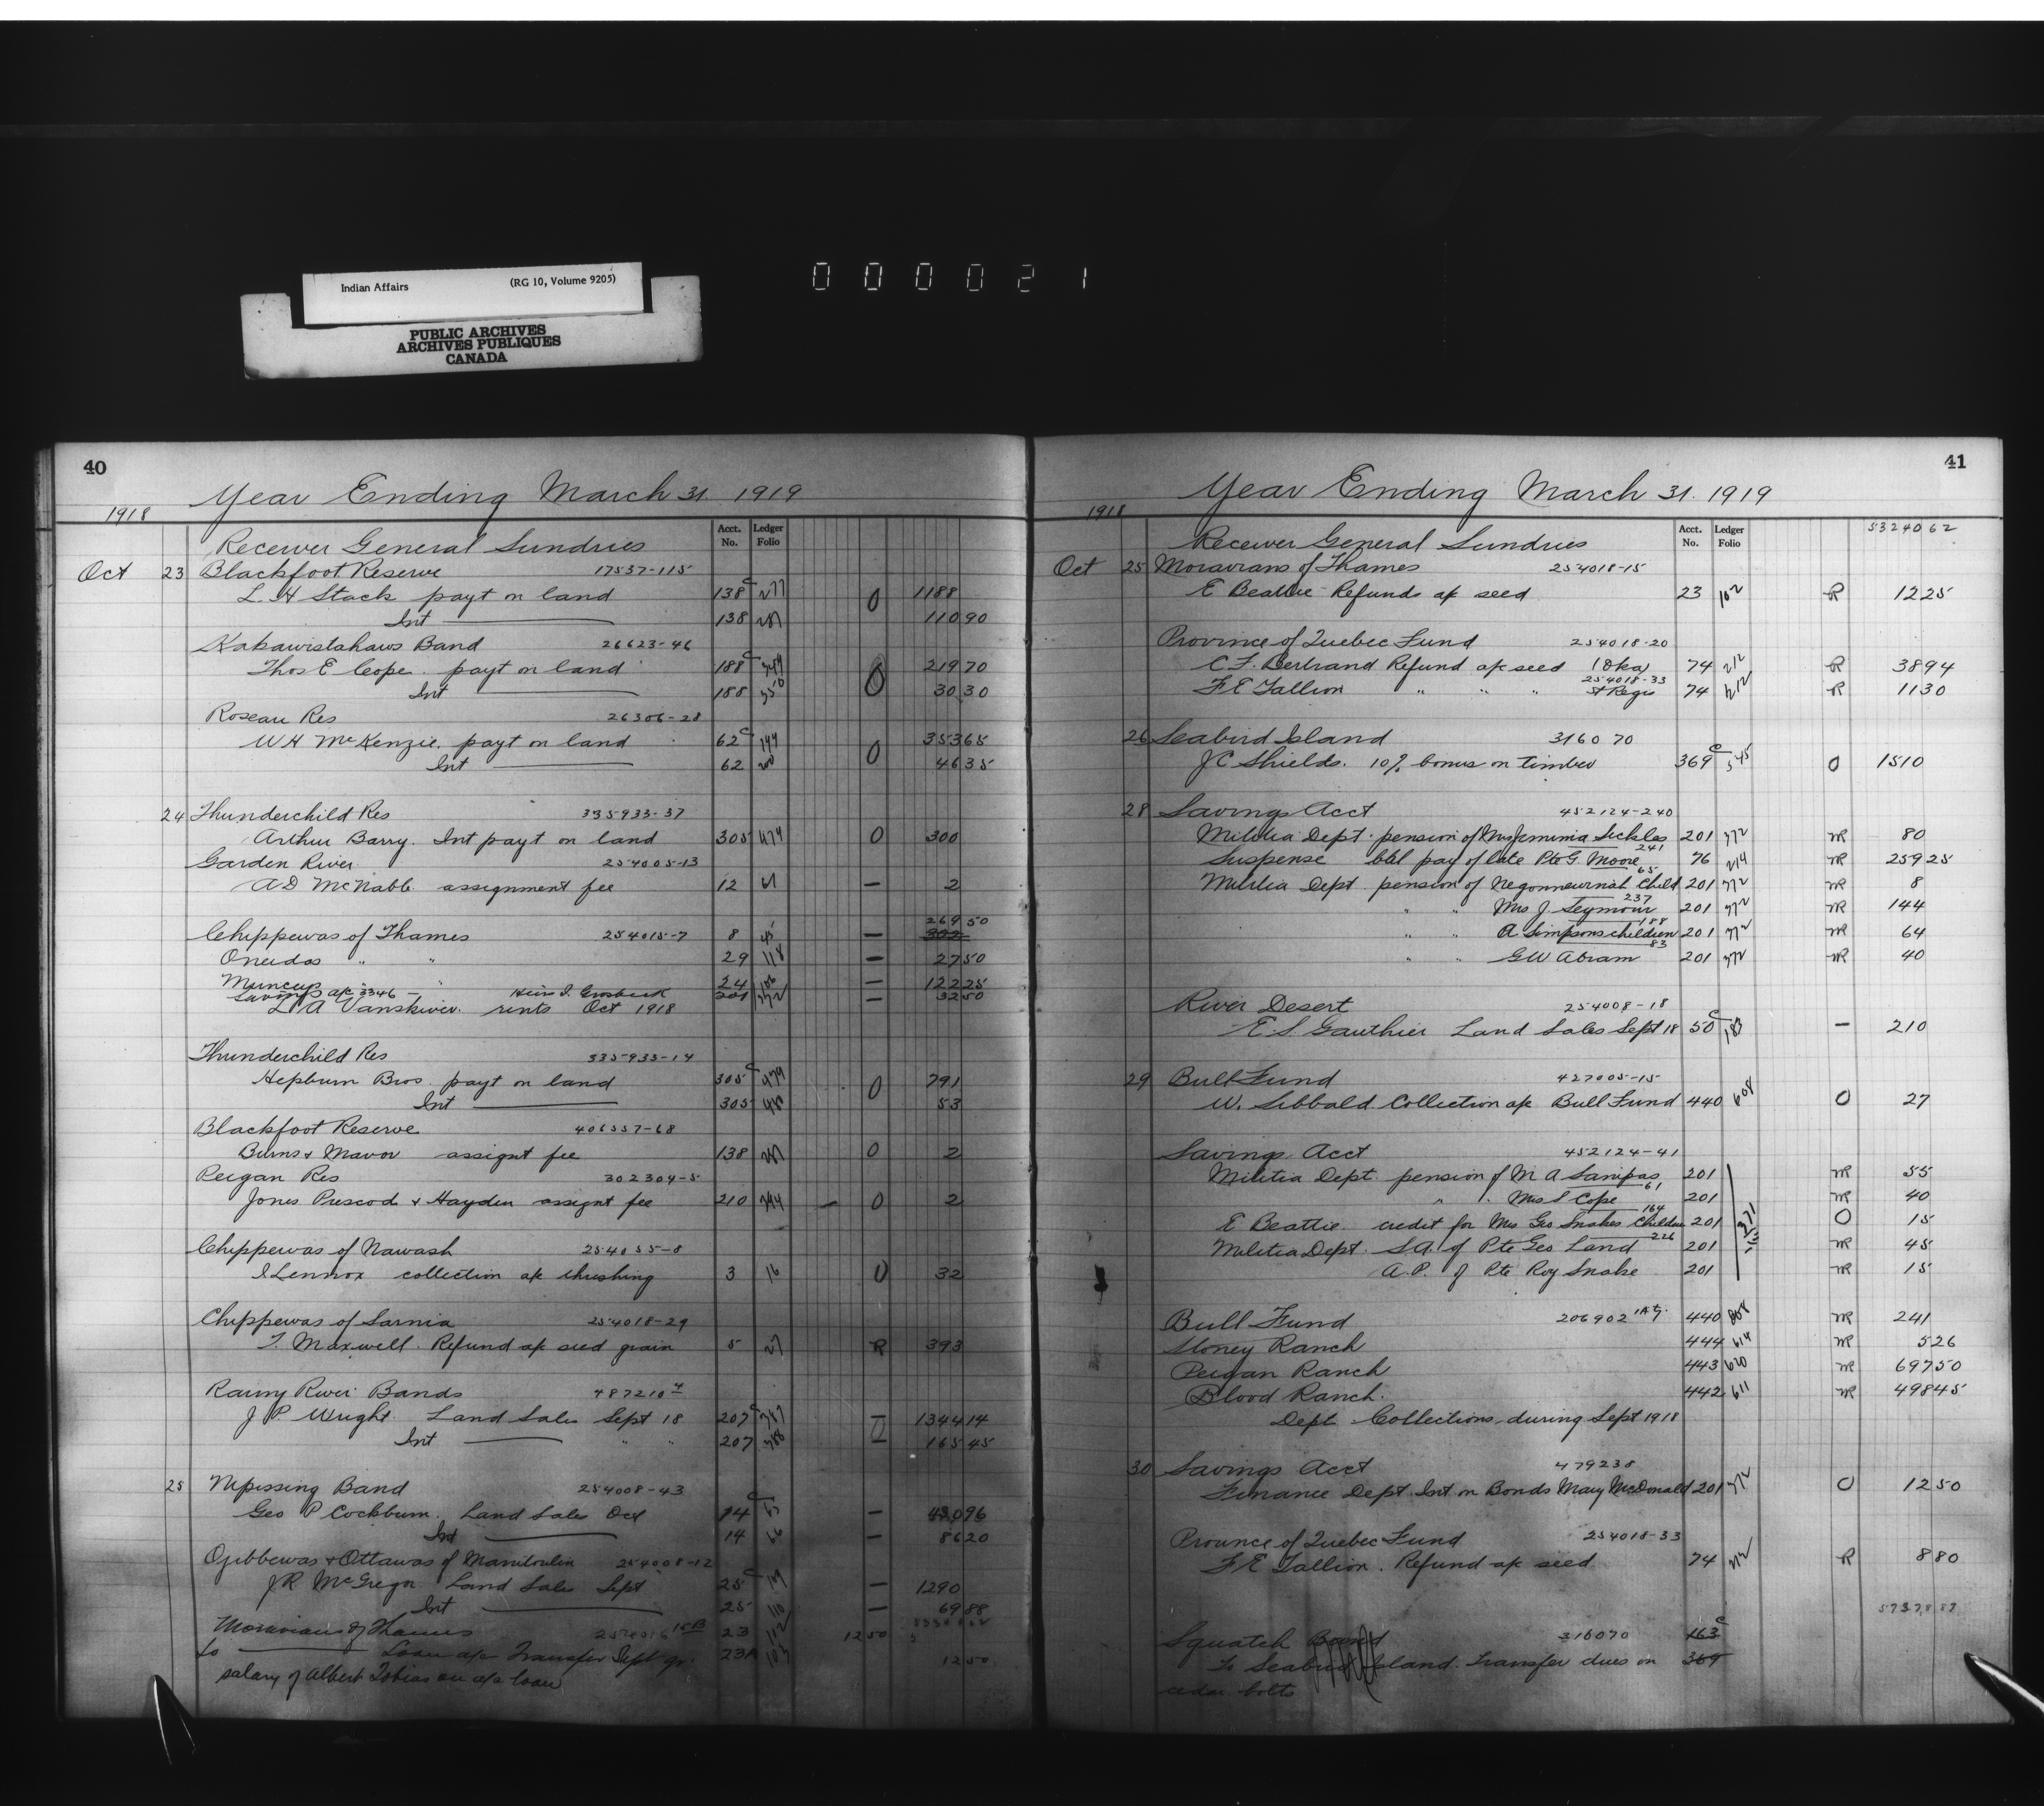 Indian Affairs (RG 10, Volume 9205)
PUBLIC ARCHIVES
ARCHIVES PUBLIQUES
CANADA
000021
40
Year Ending March 31 1919
1918
Acct. No. Ledger Folio
Receiver General Sundries
Oct 23 Blackfoot Reserve 17537-115
L. H Stack payt on land 138 c 277 0 1188
Int 138 0 110 90
Kakawistahaws Band 26623-46
Thos E Cope payt on land 188 c 349 0 219 70
Int 188 350 30 30
Roseau Res 26306-28
W H McKenzie payt on land 62 c 199 0 353 65
Int 62 200 46 35
24 Thunderchild Res 335933-37
Arthur Barry. Int payt on land 305 479 0 300
Garden River 254005-13
A D McNabb assignment fee 12 61 — 2
269 50
Chippewas of Thames 254015-7 8 45 — 302
Oneidas " " 29 118 — 27 50
Munceys " 24 106 — 122 25
Savings a/c 3346 — Heirs I. Grosbeck 201 372 — 32 50
L A Vanskiver rents Oct 1918
Thunderchild Res 335933-14
Hepburn Bros. payt on land 305 c 479 0 791
Int 305 480 53
Blackfoot Reserve 406557-68
Burns & Mavor assignt fee 138 0 2
Peigan Res 302304-5
Jones Prescod & Hayden assignt fee 210 394 — 0 2
Chippewas of Nawash 254055-8
I Lennox collection a/c threshing 3 16 0 32
Chippewas of Sarnia 254018-29
T. Maxwell. Refund a/c seed grain 5 27 R 393
Rainy River Bands 487210-4
J P Wright Land Sales Sept 18 207 c 387 — 1344 14
Int " " 207 388 — 165 45
25 Nipissing Band 254008-43
Geo P Cockburn. Land Sales Oct 14 c 65 — 430 96
Int 14 66 — 86 20
Ojibbewas & Ottawas of Manitoulin 254008-12
J R McGregor Land Sales Sept 25 c 109 — 1290
Int 25 110 — 69 88
Moravians of Thames 15B 23 112 12 50
to Loan a/c Transfer Sept qr. 23A 103 12 50
salary of Albert Tobias on a/c loan
41
Year Ending March 31. 1919
1918
Acct. No. Ledger Folio
53240 62
Receiver General Sundries
Oct 25 Moravians of Thames 254018-15
E Beattie Refunds a/c seed 23 102 R 12 25
Province of Quebec Fund 254018-20
C. F. Bertrand Refund a/c seed (Oka) 74 212 R 38 94
254018-33
F E Tallion " " " St Regis 74 212 R 11 30
26 Seabird Island 316070
J C Shields. 10% bonus on timber 369 c 545 0 15 10
28 Savings Acct 452124-240
Militia Dept. pension of Mrs Jemimia Sickles 201 372 NR 80
241
Suspense bal pay of late Pte G. Moore 76 214 NR 259 25
65
Militia Dept pension of Negonnewinah Child 201 372 NR 8
237
" " Mrs J. Seymour 201 372 NR 144
188
" " A Simpsons children 201 372 NR 64
83
" " G W Abram 201 372 NR 40
River Desert 254008-18
E. S. Gauthier Land Sales Sept 18 50 c 183 — 210
29 Bull Fund 427005-15
W. Sibbald Collection a/c Bull Fund 440 608 0 27
Savings Acct 452124-41
Militia Dept. pension of M A Sanipas 201 NR 55
61
" " Mrs S Cope 201 NR 40
164
E Beattie credit for Mrs Geo Snakes Children 201 371 0 15
226
Militia Dept. S.A. of Pte Geo Land 201 NR 45
A.P. of Pte Roy Snake 201 NR 15
Bull Fund 206902 440 608 NR 241
Stoney Ranch 444 614 NR 5 26
Peigan Ranch 443 620 NR 697 50
Blood Ranch. 442 611 NR 498 45
Dept Collections during Sept 1918
30 Savings Acct 479238
Finance Dept Int on Bonds Mary McDonald 201 372 0 12 50
Province of Quebec Fund 254018-33
F E Tallion. Refund a/c seed 74 212 R 8 80
57378 87
Squatch Band 316070 163 c
To Seabird Island. Transfer dues on 369
cedar bolts